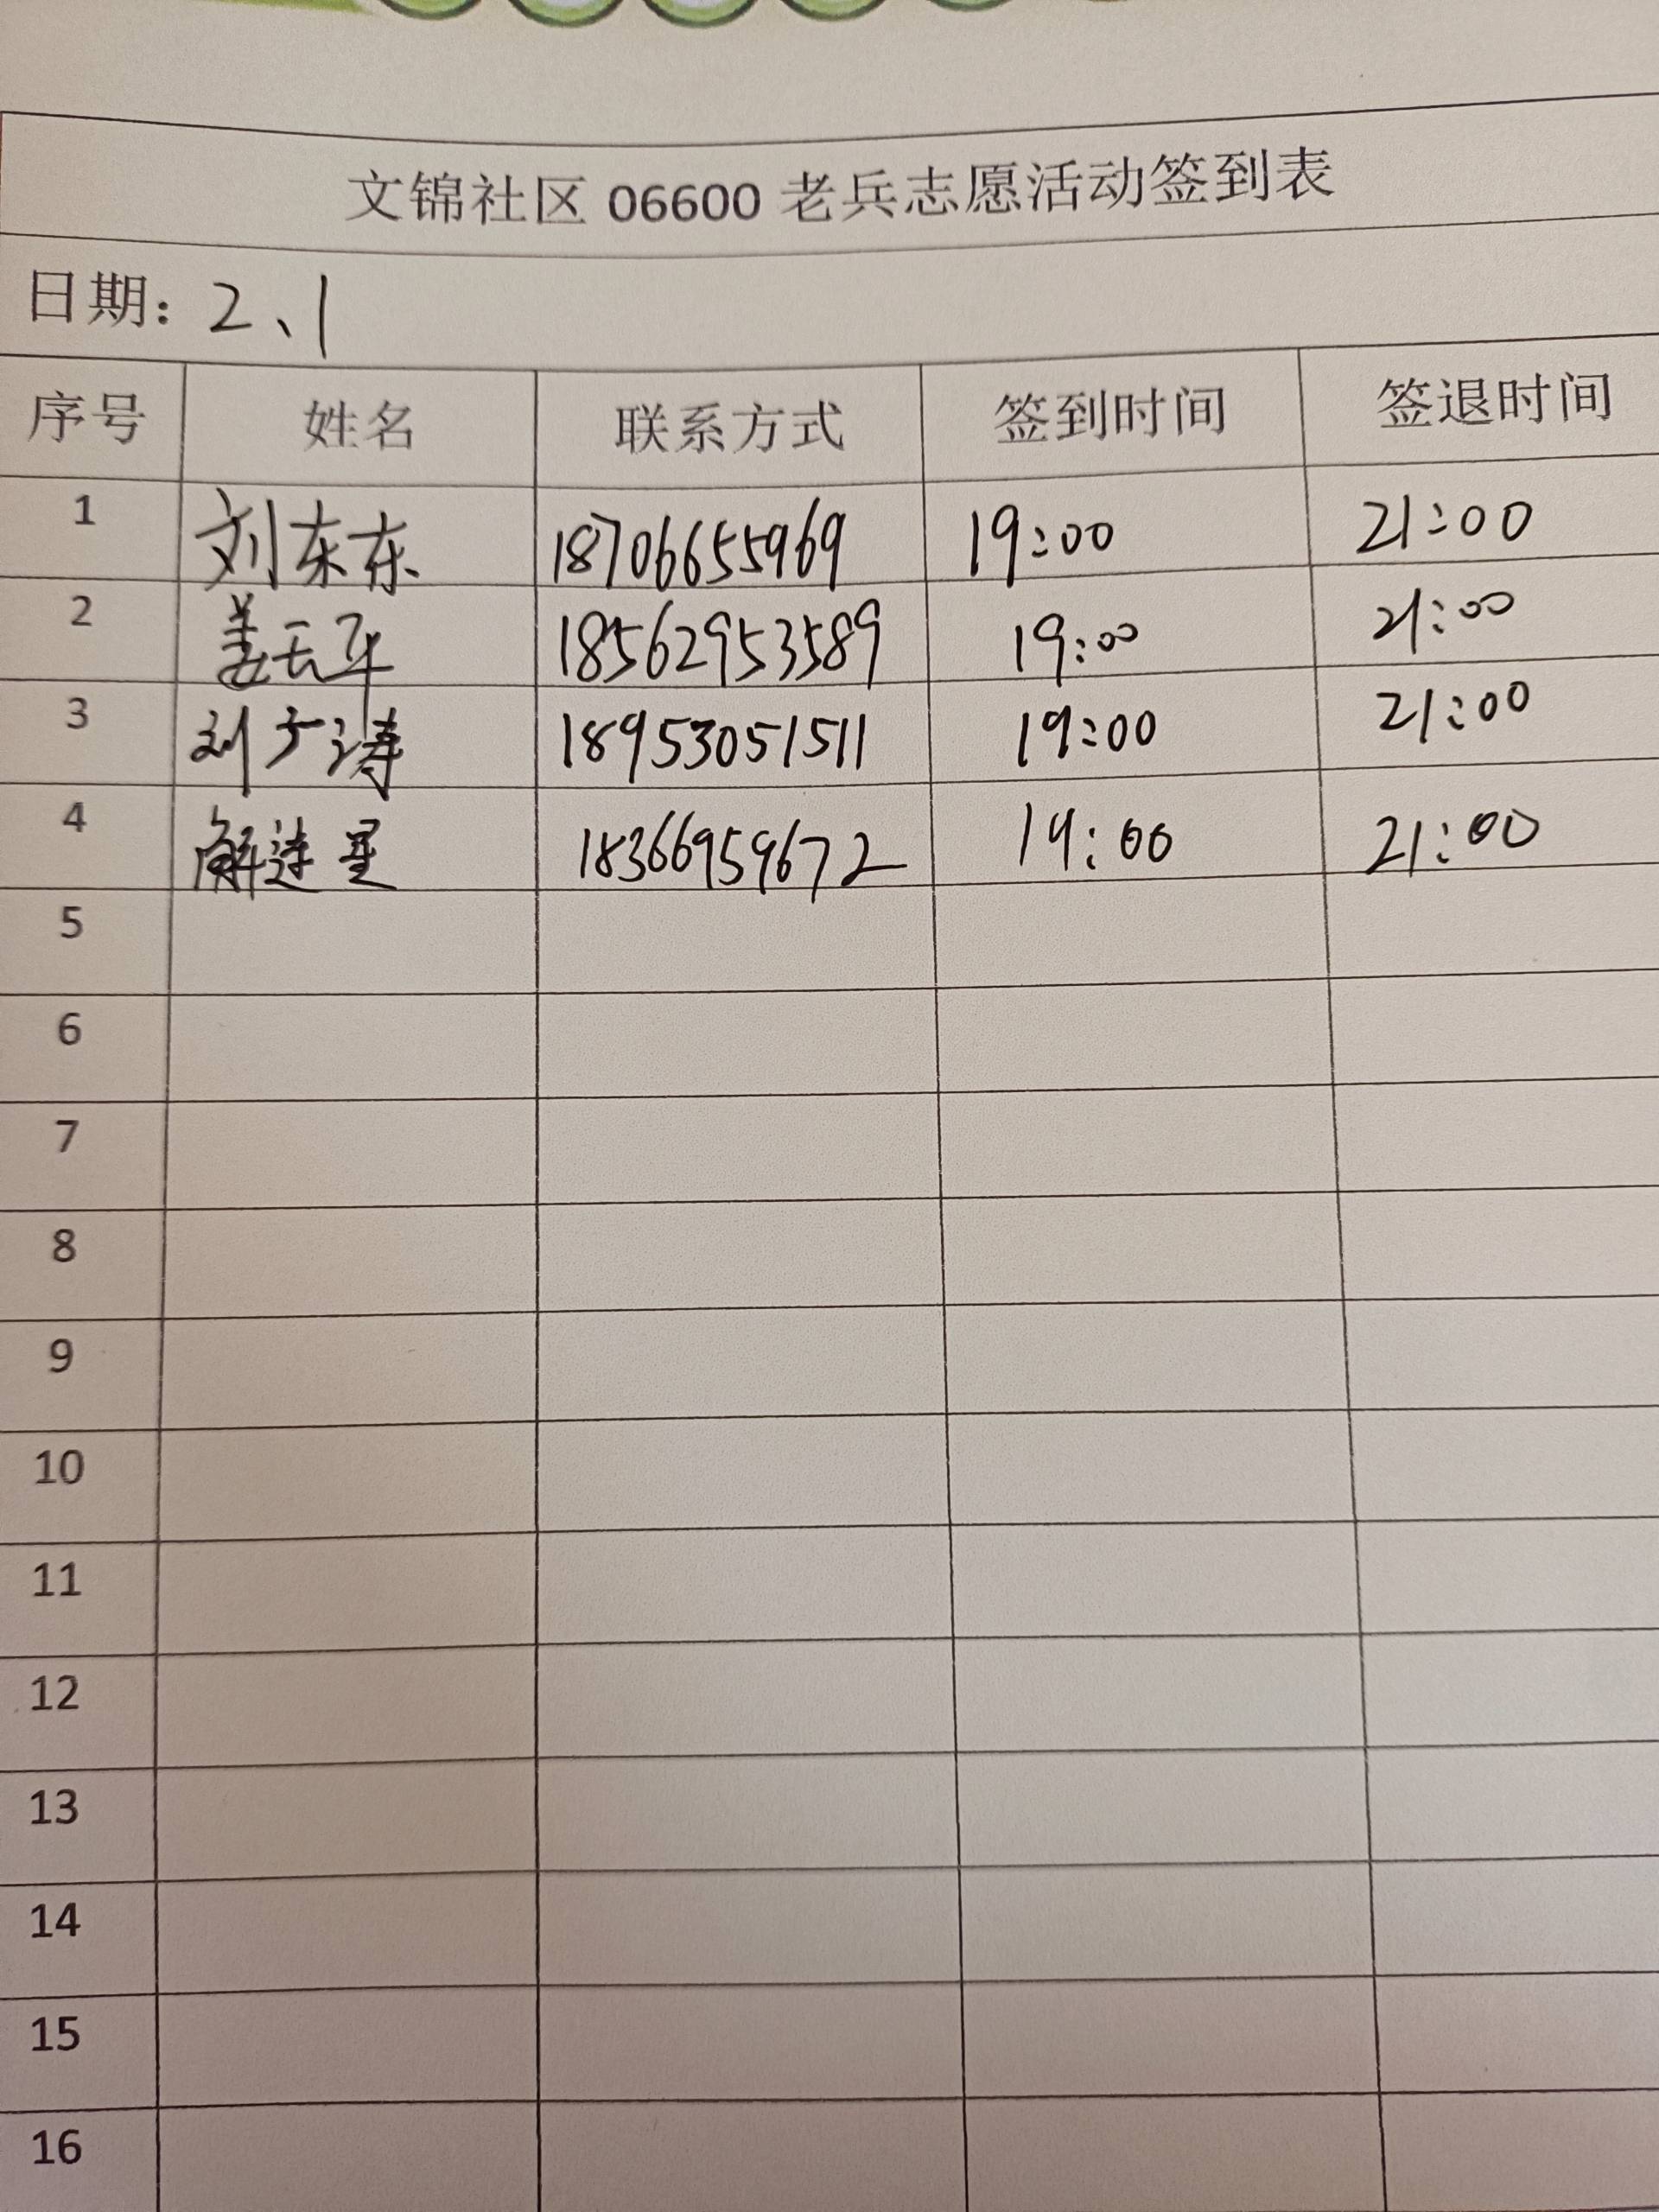 文锦社区 06600 老兵志愿活动签到表
日期: 2、1
序号 姓名 联系方式 签到时间 签退时间
1 刘东东 18706655969 19:00 21:00
2 18562953589 19:00 21:00
3 刘广涛 18953051511 19:00 21:00
4 解连星 18366959672 19:00 21:00
5
6
7
8
9
10
11
12
13
14
15
16